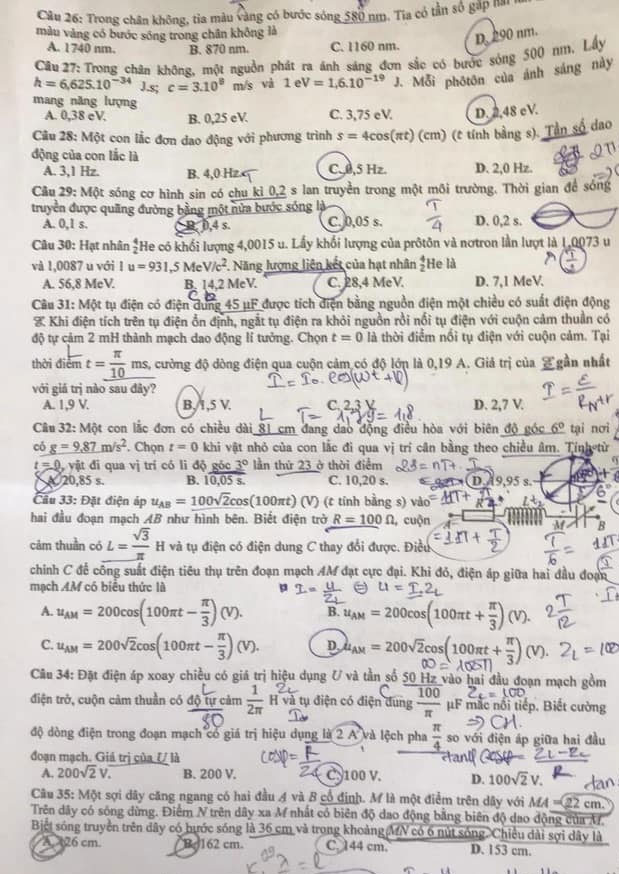 Câu 26: Trong chân không, tia màu vàng có bước sóng 580 nm. Tia có tần số gấp hai
màu vàng có bước sóng trong chân không là
A. 1740 nm. B. 870 nm. C. 1160 nm. D. 290 nm.
Câu 27: Trong chân không, một nguồn phát ra ánh sáng đơn sắc có bước sóng 500 nm. Lấy
h = 6,625.10⁻³⁴ J.s; c = 3.10⁸ m/s và 1 eV = 1,6.10⁻¹⁹ J. Mỗi phôtôn của ánh sáng này
mang năng lượng
A. 0,38 eV. B. 0,25 eV. C. 3,75 eV. D. 2,48 eV.
Câu 28: Một con lắc đơn dao động với phương trình s = 4cos(πt) (cm) (t tính bằng s). Tần số dao
động của con lắc là
A. 3,1 Hz. B. 4,0 Hz. C. 0,5 Hz. D. 2,0 Hz.
Câu 29: Một sóng cơ hình sin có chu kì 0,2 s lan truyền trong một môi trường. Thời gian để sóng
truyền được quãng đường bằng một nửa bước sóng là
A. 0,1 s. B. 0,4 s. C. 0,05 s. D. 0,2 s.
T/4
Câu 30: Hạt nhân ⁴₂He có khối lượng 4,0015 u. Lấy khối lượng của prôtôn và nơtron lần lượt là 1,0073 u
và 1,0087 u với 1 u = 931,5 MeV/c². Năng lượng liên kết của hạt nhân ⁴₂He là
A. 56,8 MeV. B. 14,2 MeV. C. 28,4 MeV. D. 7,1 MeV.
Câu 31: Một tụ điện có điện dung 45 μF được tích điện bằng nguồn điện một chiều có suất điện động
ℰ. Khi điện tích trên tụ điện ổn định, ngắt tụ điện ra khỏi nguồn rồi nối tụ điện với cuộn cảm thuần có
độ tự cảm 2 mH thành mạch dao động lí tưởng. Chọn t = 0 là thời điểm nối tụ điện với cuộn cảm. Tại
thời điểm t = π/10 ms, cường độ dòng điện qua cuộn cảm có độ lớn là 0,19 A. Giá trị của ℰ gần nhất
với giá trị nào sau đây?
I = I₀.cos(ωt+φ)
A. 1,9 V. B. 1,5 V. C. 2,3 V. D. 2,7 V.
Câu 32: Một con lắc đơn có chiều dài 81 cm đang dao động điều hòa với biên độ góc 6⁰ tại nơi
có g = 9,87 m/s². Chọn t = 0 khi vật nhỏ của con lắc đi qua vị trí cân bằng theo chiều âm. Tính từ
t = 0, vật đi qua vị trí có li độ góc 3⁰ lần thứ 23 ở thời điểm
A. 20,85 s. B. 10,05 s. C. 10,20 s. D. 19,95 s.
Câu 33: Đặt điện áp u_AB = 100√2cos(100πt) (V) (t tính bằng s) vào
hai đầu đoạn mạch AB như hình bên. Biết điện trở R = 100 Ω, cuộn
A R L M B
cảm thuần có L = √3/π H và tụ điện có điện dung C thay đổi được. Điều
chỉnh C để công suất điện tiêu thụ trên đoạn mạch AM đạt cực đại. Khi đó, điện áp giữa hai đầu đoạn
mạch AM có biểu thức là
A. u_AM = 200cos(100πt − π/3) (V). B. u_AM = 200cos(100πt + π/3) (V).
C. u_AM = 200√2cos(100πt − π/3) (V). D. u_AM = 200√2cos(100πt + π/3) (V).
Câu 34: Đặt điện áp xoay chiều có giá trị hiệu dụng U và tần số 50 Hz vào hai đầu đoạn mạch gồm
điện trở, cuộn cảm thuần có độ tự cảm 1/2π H và tụ điện có điện dung 100/π μF mắc nối tiếp. Biết cường
độ dòng điện trong đoạn mạch có giá trị hiệu dụng là 2 A và lệch pha π/4 so với điện áp giữa hai đầu
đoạn mạch. Giá trị của U là
A. 200√2 V. B. 200 V. C. 100 V. D. 100√2 V.
Câu 35: Một sợi dây căng ngang có hai đầu A và B cố định. M là một điểm trên dây với MA = 22 cm.
Trên dây có sóng dừng. Điểm N trên dây xa M nhất có biên độ dao động bằng biên độ dao động của M.
Biết sóng truyền trên dây có bước sóng là 36 cm và trong khoảng MN có 6 nút sóng. Chiều dài sợi dây là
A. 126 cm. B. 162 cm. C. 144 cm. D. 153 cm.